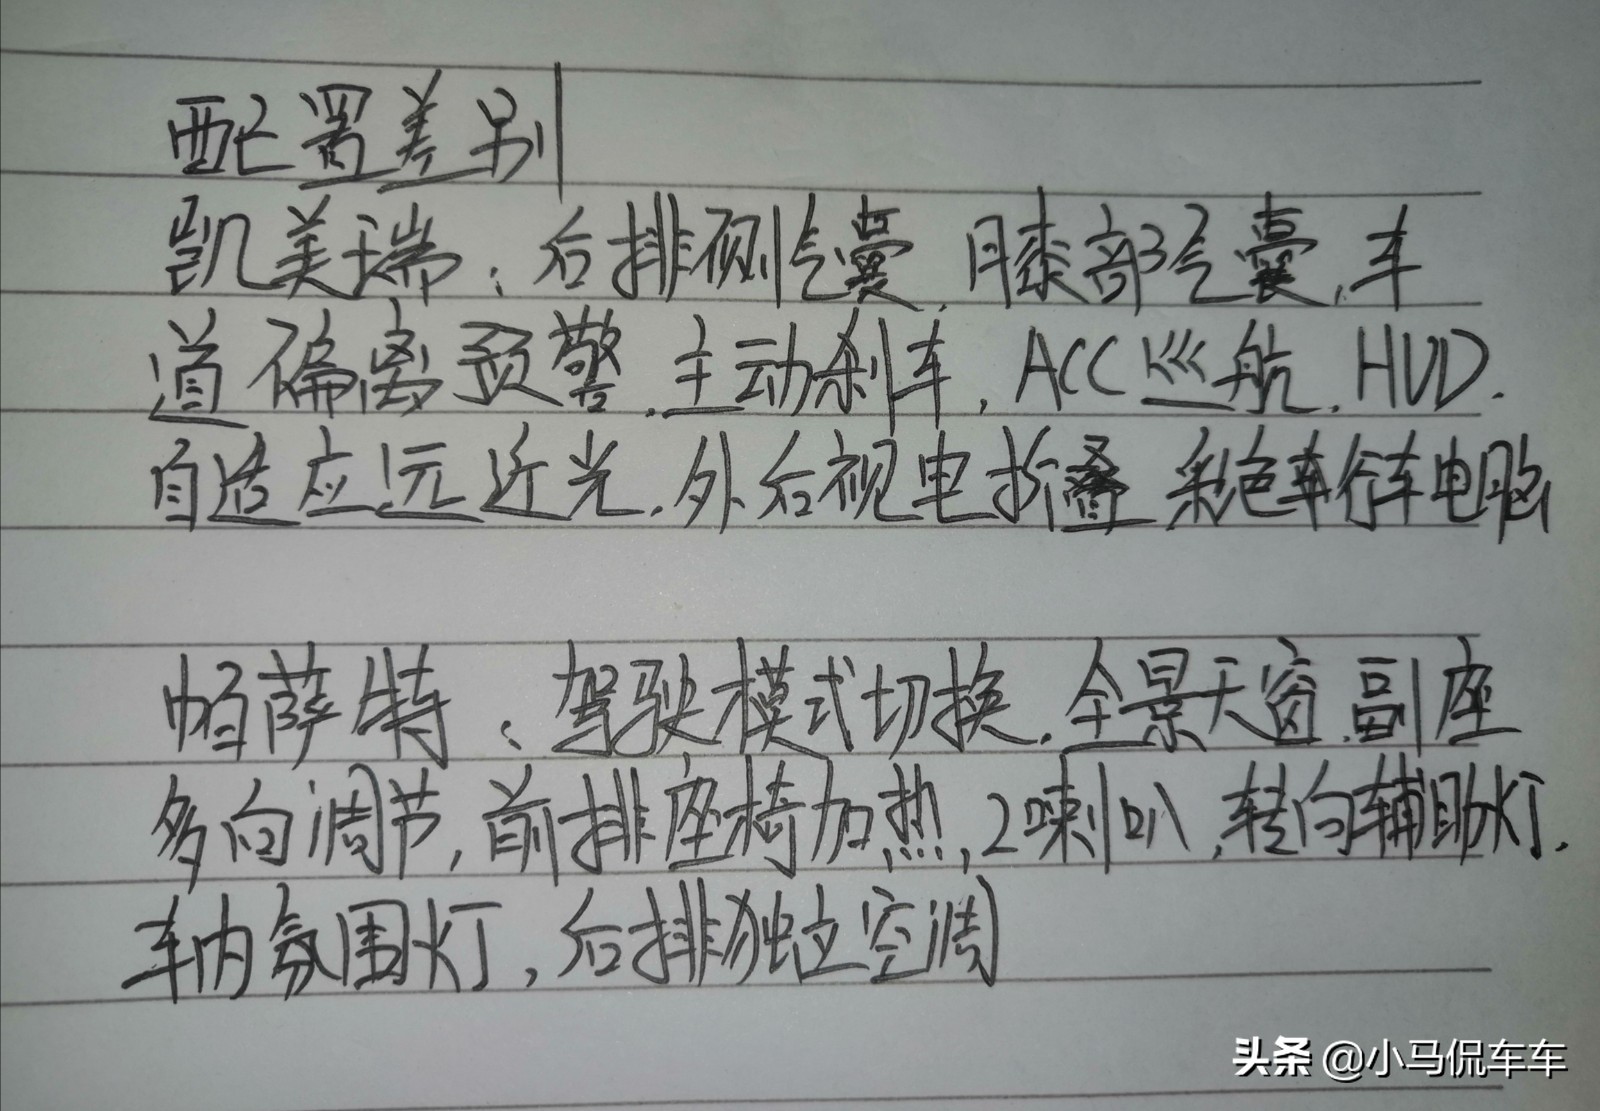 配置差别
凯美瑞：后排侧气囊，膝部气囊，车
道偏离预警，主动刹车，ACC巡航，HUD．
自适应远近光，外后视电折叠 彩色车行车电脑
帕萨特：驾驶模式切换，全景天窗，副座
多向调节，前排座椅加热，2喇叭，转向辅助灯．
车内氛围灯，后排独立空调
头条 @小马侃车车